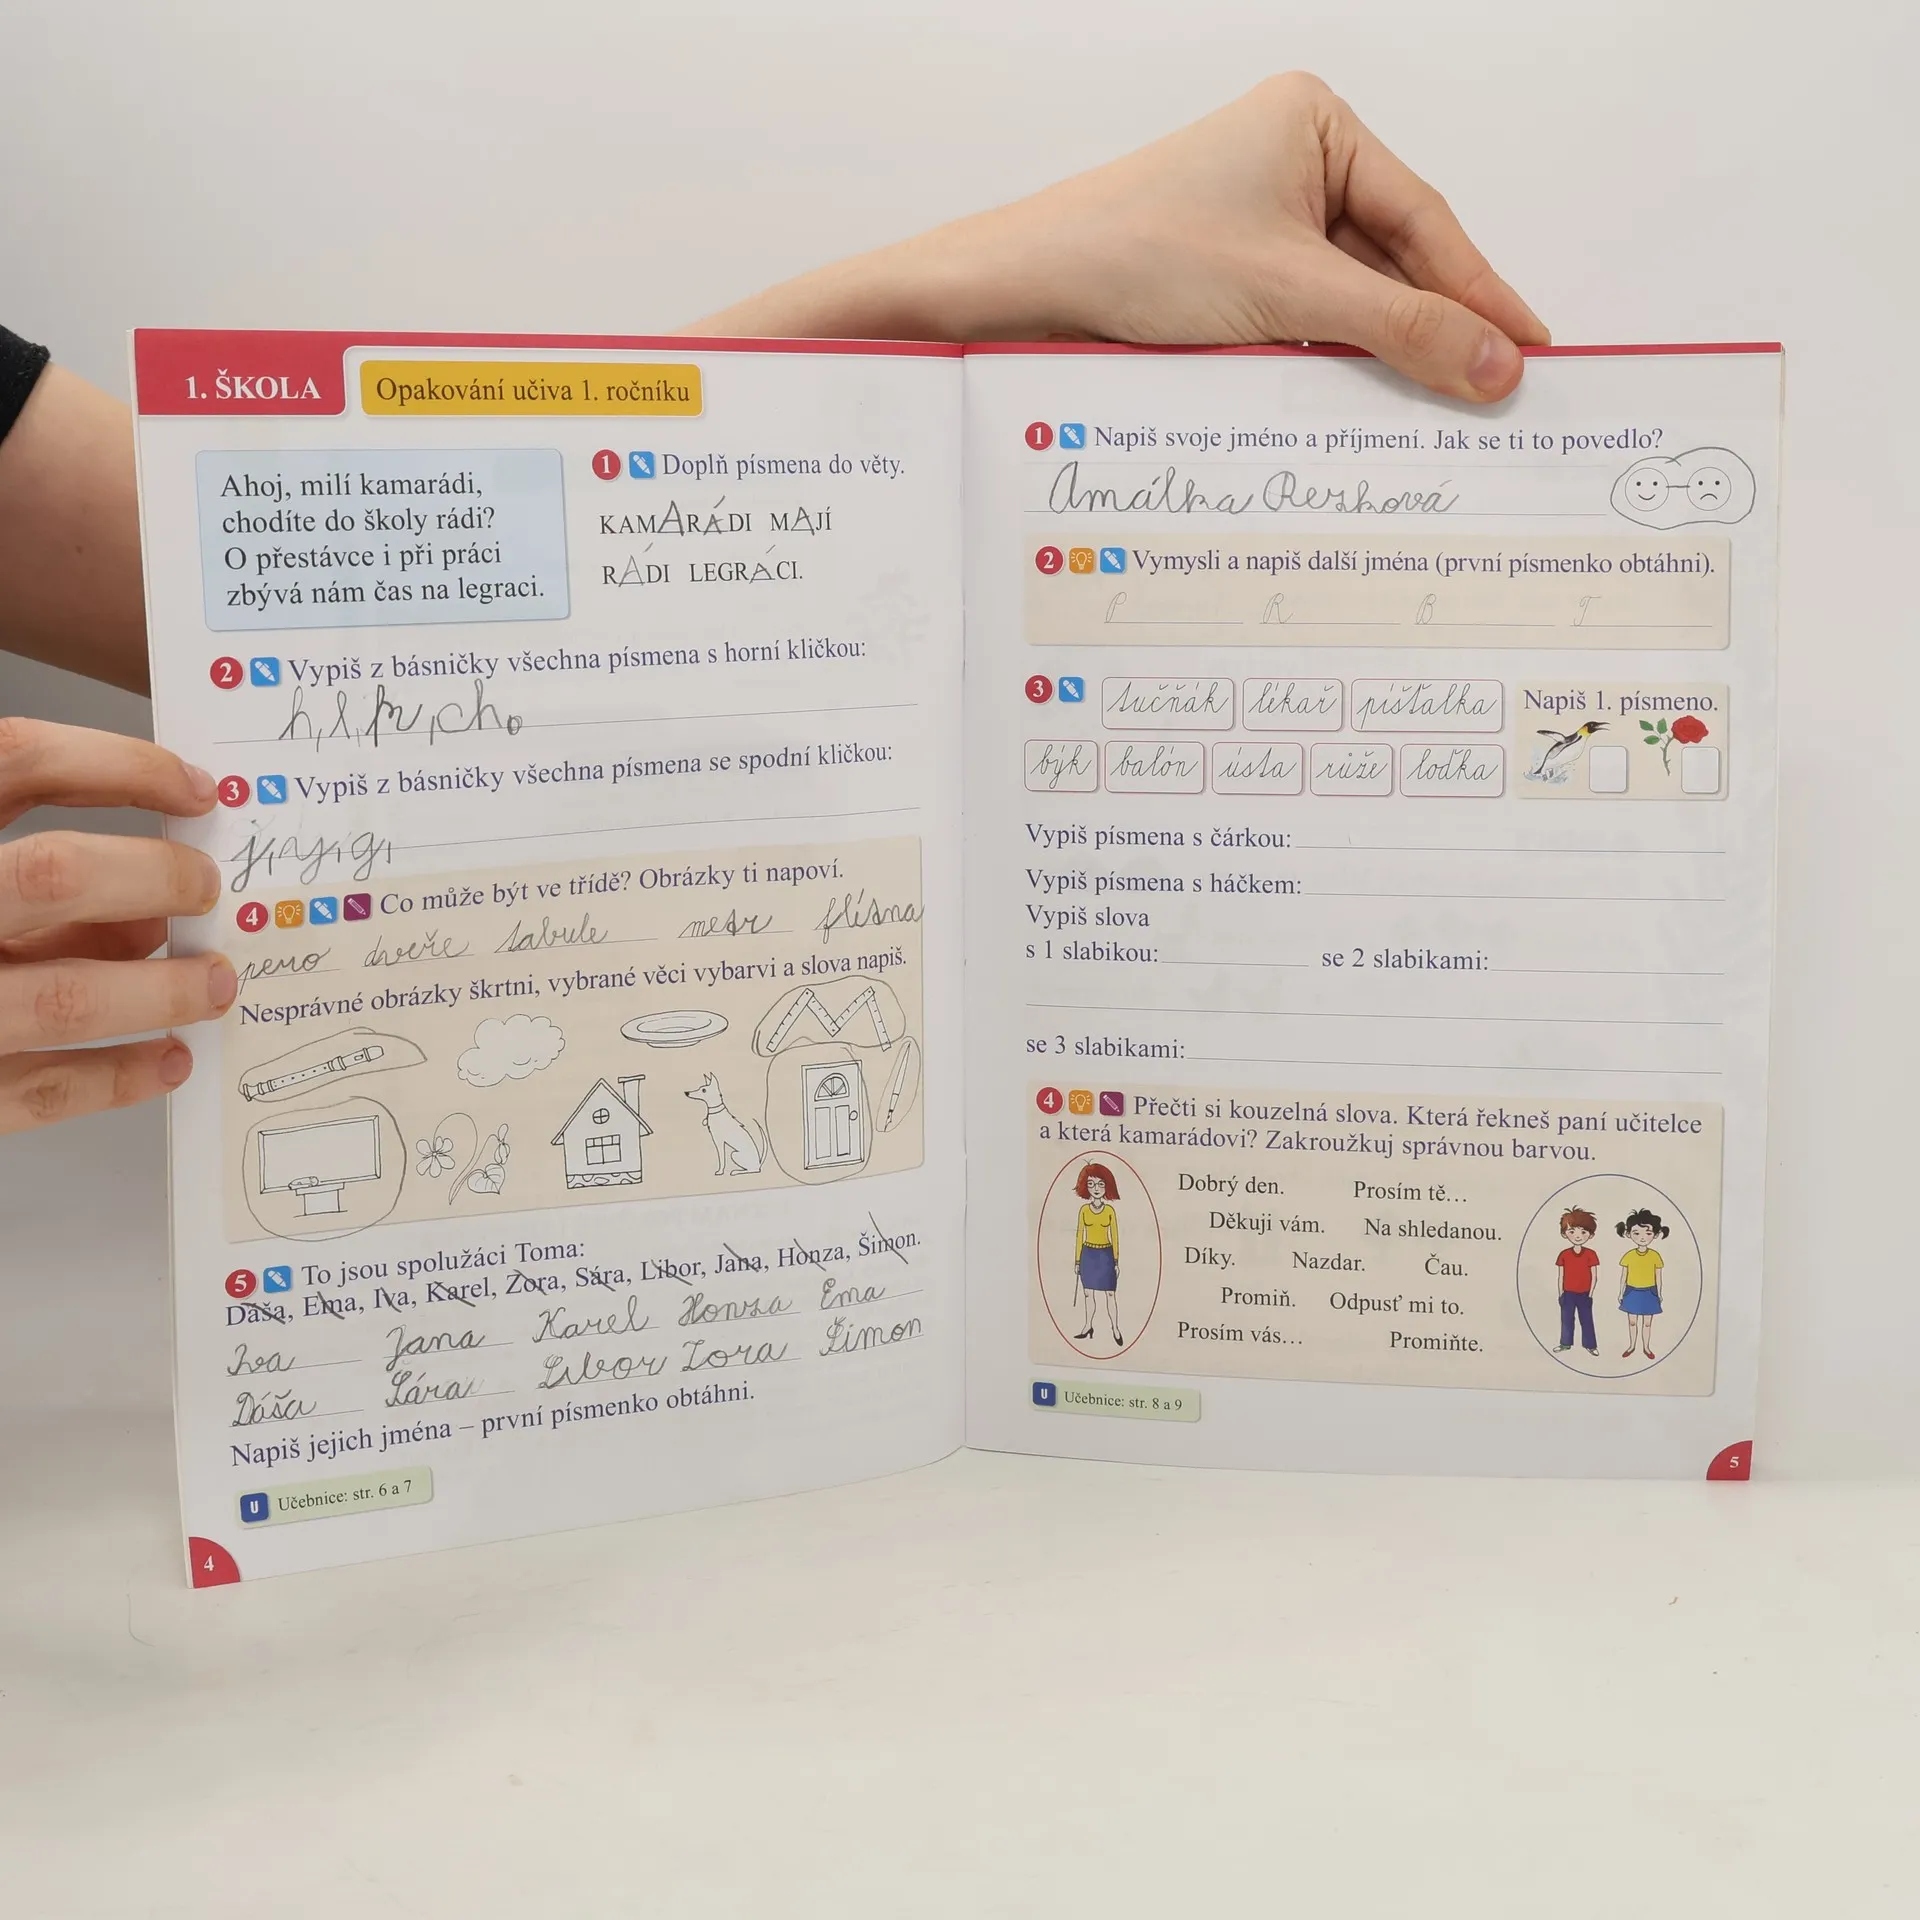 1. ŠKOLA
Opakování učiva 1. ročníku
Ahoj, milí kamarádi,
chodíte do školy rádi?
O přestávce i při práci
zbývá nám čas na legraci.
1 Doplň písmena do věty.
KAMARÁDI MAJÍ
RÁDI LEGRÁCI.
2 Vypiš z básničky všechna písmena s horní kličkou:
h, l, k, ch.
3 Vypiš z básničky všechna písmena se spodní kličkou:
j, y, g,
4 Co může být ve třídě? Obrázky ti napoví.
pero dveře tabule metr flétna
Nesprávné obrázky škrtni, vybrané věci vybarvi a slova napiš.
5 To jsou spolužáci Toma:
Dáša, Ema, Iva, Karel, Zora, Sára, Libor, Jana, Honza, Šimon.
Iva Jana Karel Honza Ema
Dáša Sára Libor Zora Šimon
Napiš jejich jména – první písmenko obtáhni.
U Učebnice: str. 6 a 7
4
1 Napiš svoje jméno a příjmení. Jak se ti to povedlo?
Amálka Rezková
2 Vymysli a napiš další jména (první písmenko obtáhni).
P R B T
3 tučňák lékař píšťalka
Napiš 1. písmeno.
býk balón ústa růže loďka
Vypiš písmena s čárkou:
Vypiš písmena s háčkem:
Vypiš slova
s 1 slabikou: se 2 slabikami:
se 3 slabikami:
4 Přečti si kouzelná slova. Která řekneš paní učitelce
a která kamarádovi? Zakroužkuj správnou barvou.
Dobrý den. Prosím tě...
Děkuji vám. Na shledanou.
Díky. Nazdar. Čau.
Promiň. Odpusť mi to.
Prosím vás... Promiňte.
U Učebnice: str. 8 a 9
5